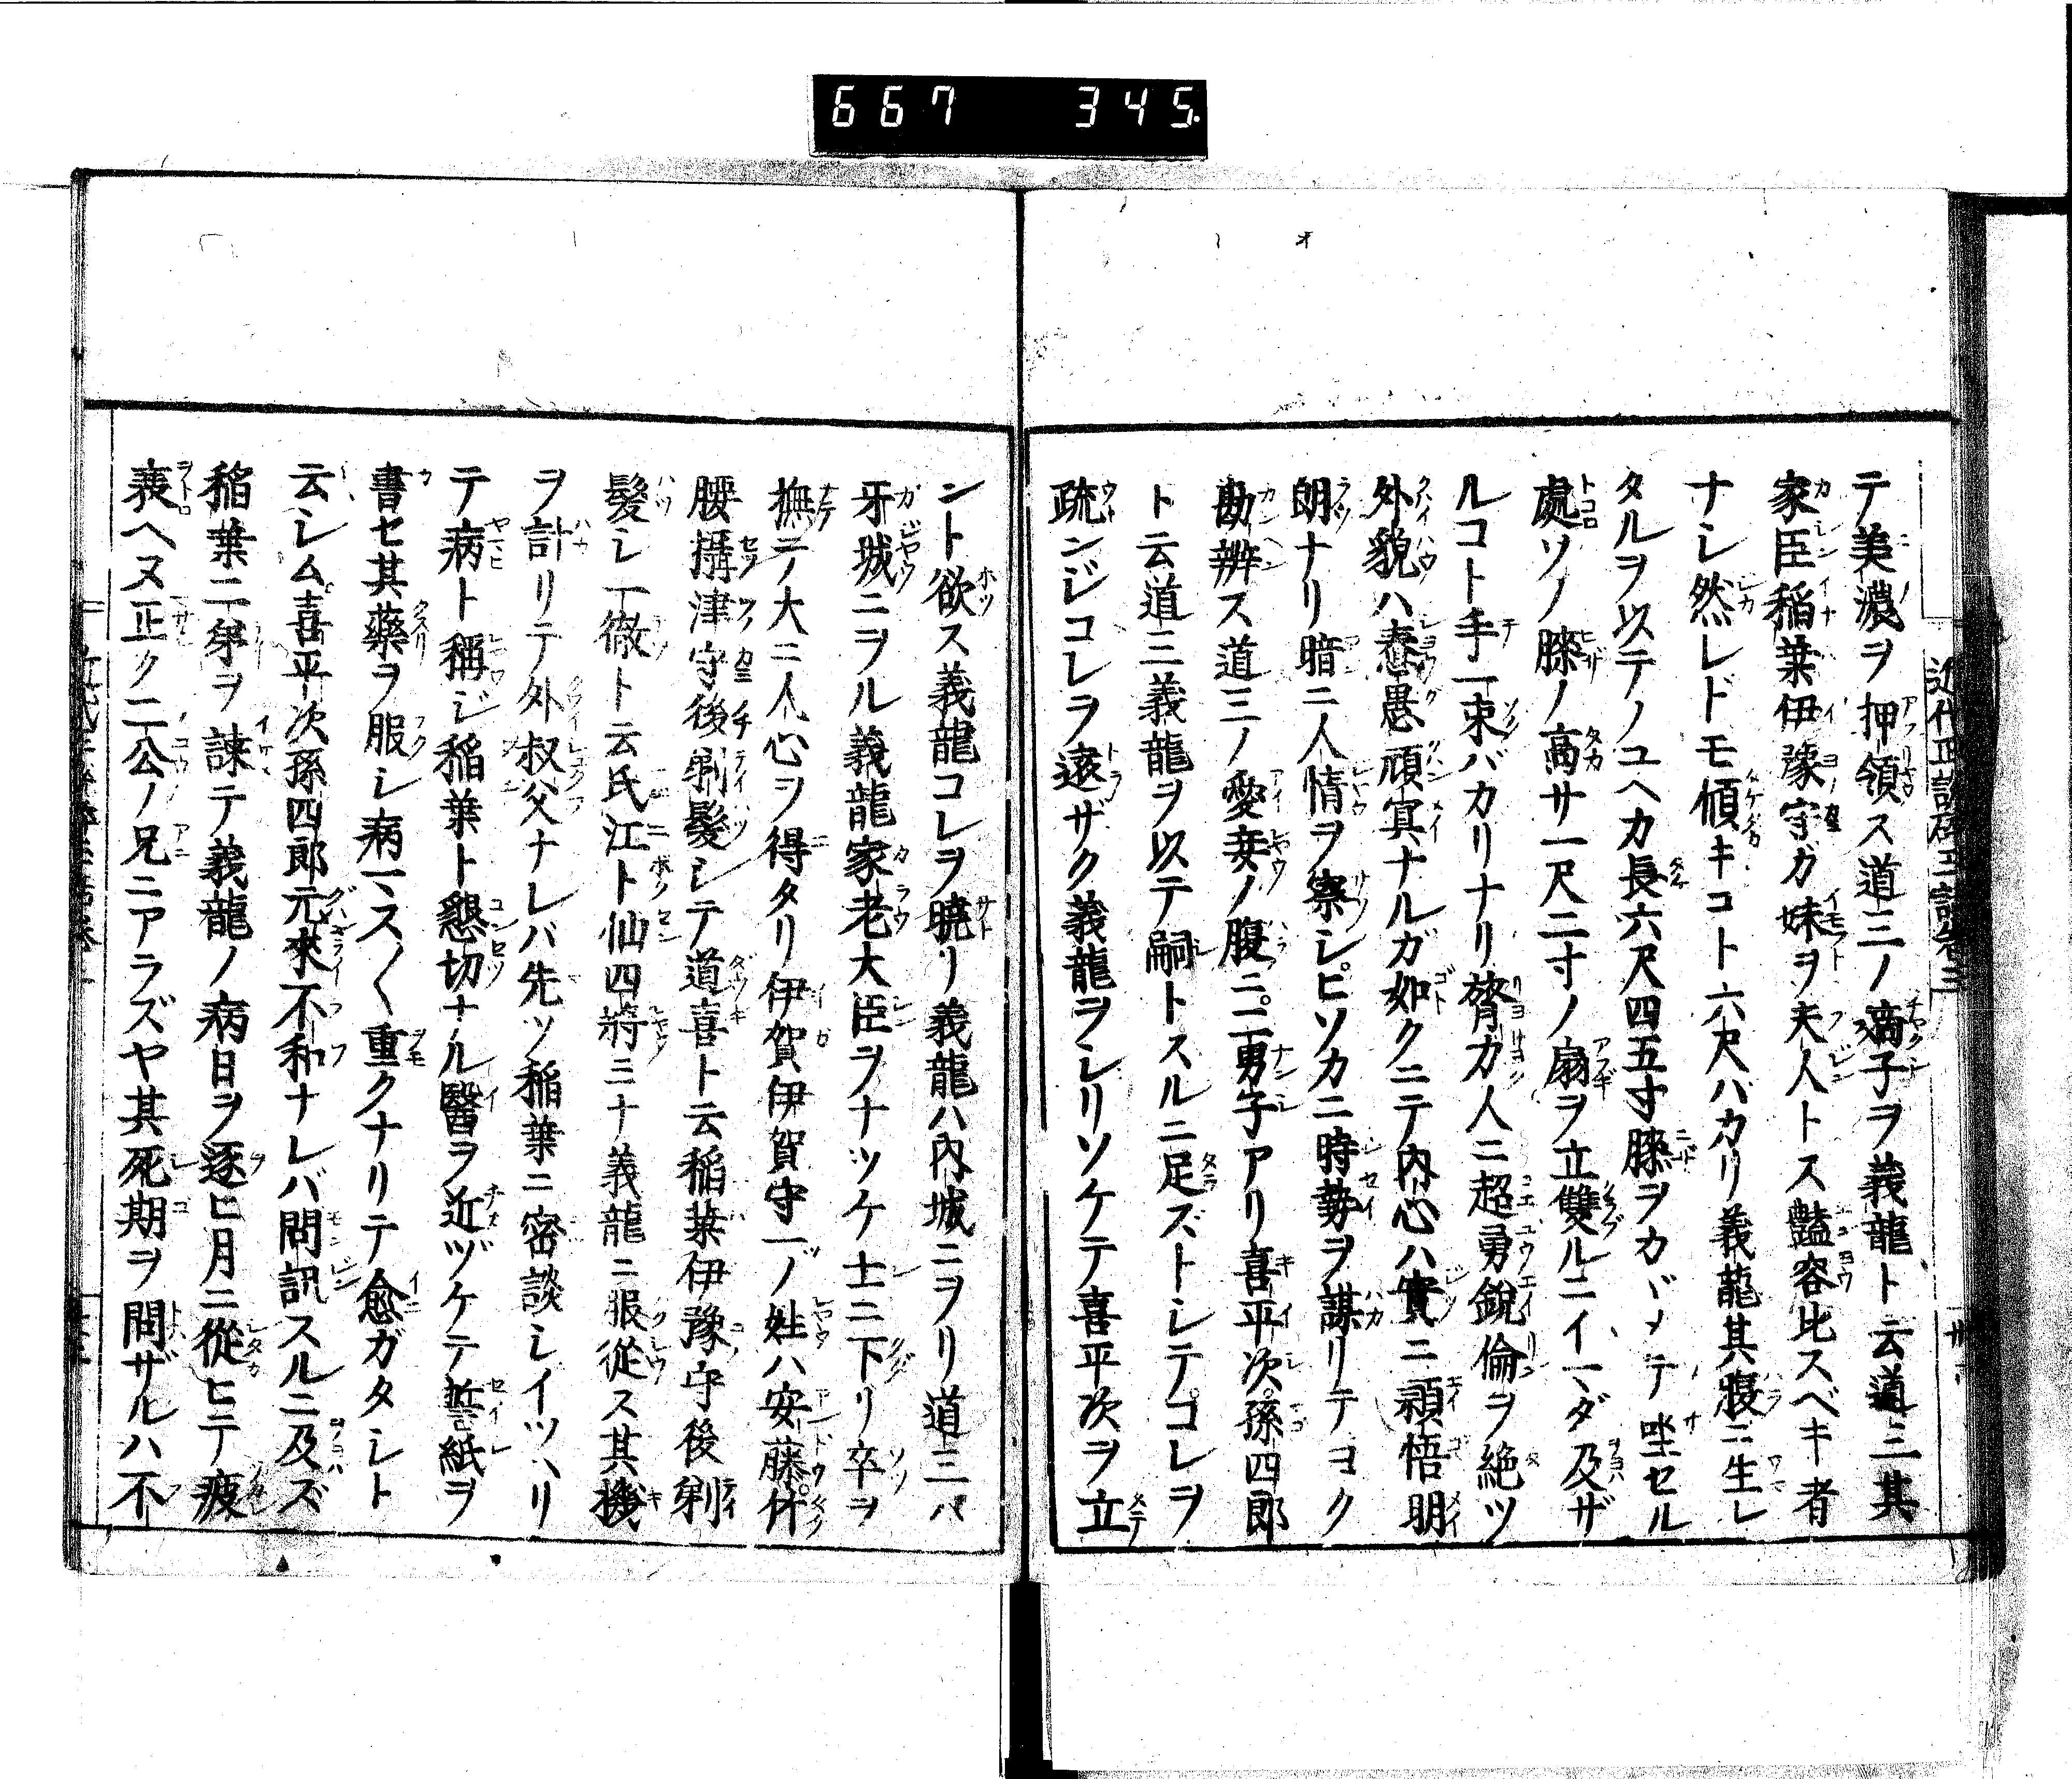 667 345
テ美濃ヲ押領ス道三ノ嫡子ヲ義龍ト云道三其
家臣稲葉伊豫守ガ妹ヲ夫人トス豔容比スベキ者
ナシ然レドモ傾キコト六尺バカリ義龍其腹ニ生レ
タルヲ以テノユヘカ長六尺四五寸膝ヲカヾメテ坐セル
處ソノ膝ノ高サ一尺二寸ノ扇ヲ立雙ルニイマダ及ザ
ルコト手一束バカリナリ膂力人ニ超勇銳倫ヲ絶ツ
外貌ハ憃愚頑冥ナルガ如クニテ内心ハ實ニ穎悟明
朗ナリ暗ニ人情ヲ察シヒソカニ時勢ヲ謀リテヨク
勘辨ス道三ノ愛妾ノ腹ニ二男子アリ喜平次孫四郎
ト云道三義龍ヲ以テ嗣トスルニ足ズトシテコレヲ
疏ンジコレヲ遠ザク義龍ヲシリソケテ喜平次ヲ立
ント欲ス義龍コレヲ曉リ義龍ハ内城ニヲリ道三ハ
牙城ニヲル義龍家老大臣ヲナツケ士ニ下リ卒ヲ
撫テ大ニ人心ヲ得タリ伊賀伊賀守一ノ姓ハ安藤竹
腰攝津守後剃髮シテ道喜ト云稲葉伊豫守後剃
髮シ一徹ト云氏江ト仙四將ミナ義龍ニ服從ス其機
ヲ計リテ外叔父ナレバ先ツ稲葉ニ密談シイツハリ
テ病ト稱シ稲葉ト懇切ナル醫ヲ近ヅケテ誓紙ヲ
書セ其藥ヲ服シ病マス〱重クナリテ愈ガタシト
云シム喜平次孫四郎元來不和ナレバ問訊スルニ及ズ
稲葉二弟ヲ諫テ義龍ノ病日ヲ逐ヒ月ニ從ヒテ疲
衰ヘヌ正ク二公ノ兄ニアラズヤ其死期ヲ問ザルハ不